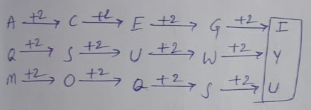 A +2 C +2 E +2 G +2 I
Q +2 S +2 U +2 W +2 Y
M +2 O +2 Q +2 S +2 U